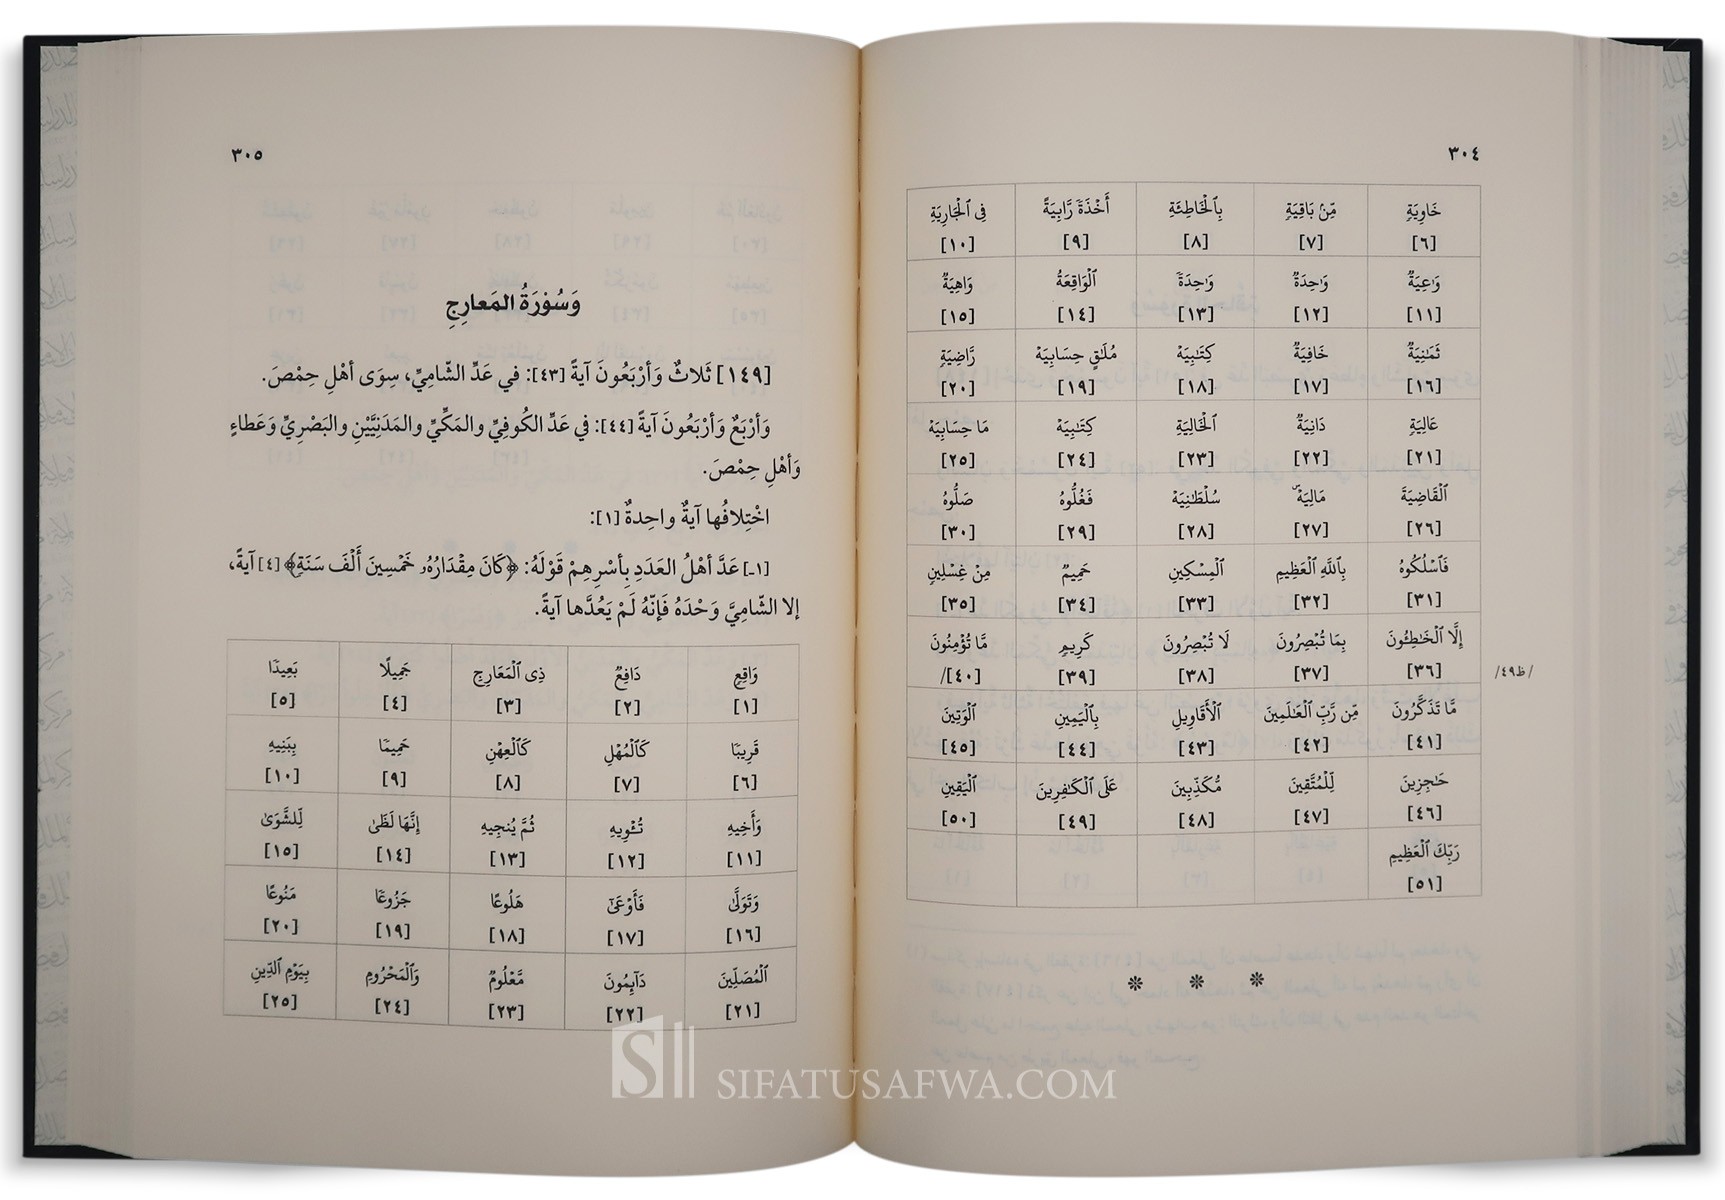 ٣٠٤
خَاوِيَةٖ مِّنۢ بَاقِيَةٖ بِٱلۡخَاطِئَةِ أَخۡذَةٗ رَّابِيَةً فِي ٱلۡجَارِيَةِ
[٦] [٧] [٨] [٩] [١٠]
وَٰعِيَةٞ وَٰحِدَةٞ وَٰحِدَةٗ ٱلۡوَاقِعَةُ وَاهِيَةٞ
[١١] [١٢] [١٣] [١٤] [١٥]
ثَمَٰنِيَةٞ خَافِيَةٞ كِتَٰبِيَهۡ مُلَٰقٍ حِسَابِيَهۡ رَّاضِيَةٖ
[١٦] [١٧] [١٨] [١٩] [٢٠]
عَالِيَةٖ دَانِيَةٞ ٱلۡخَالِيَةِ كِتَٰبِيَهۡ مَا حِسَابِيَهۡ
[٢١] [٢٢] [٢٣] [٢٤] [٢٥]
ٱلۡقَاضِيَةَ مَالِيَهۡۜ سُلۡطَٰنِيَهۡ فَغُلُّوهُ صَلُّوهُ
[٢٦] [٢٧] [٢٨] [٢٩] [٣٠]
فَٱسۡلُكُوهُ بِٱللَّهِ ٱلۡعَظِيمِ ٱلۡمِسۡكِينِ حَمِيمٞ مِنۡ غِسۡلِينٖ
[٣١] [٣٢] [٣٣] [٣٤] [٣٥]
إِلَّا ٱلۡخَٰطِـُٔونَ بِمَا تُبۡصِرُونَ لَا تُبۡصِرُونَ كَرِيمٖ مَّا تُؤۡمِنُونَ
[٣٦] [٣٧] [٣٨] [٣٩] [٤٠]/ /ظ٤٩/
مَّا تَذَكَّرُونَ مِّن رَّبِّ ٱلۡعَٰلَمِينَ ٱلۡأَقَاوِيلِ بِٱلۡيَمِينِ ٱلۡوَتِينَ
[٤١] [٤٢] [٤٣] [٤٤] [٤٥]
حَٰجِزِينَ لِّلۡمُتَّقِينَ مُّكَذِّبِينَ عَلَى ٱلۡكَٰفِرِينَ ٱلۡيَقِينِ
[٤٦] [٤٧] [٤٨] [٤٩] [٥٠]
رَبِّكَ ٱلۡعَظِيمِ
[٥١]
٣٠٥
وَسُوْرَةُ المَعارِجِ
[١٤٩] ثَلاثٌ وَأرْبَعُونَ آيةً [٤٣]: في عَدِّ الشّامِيِّ، سِوَى أهْلِ حِمْصَ.
وَأرْبَعٌ وَأرْبَعُونَ آيةً [٤٤]: في عَدِّ الكُوفِيِّ والمَكِّيِّ والمَدَنِيَّيْنِ والبَصْرِيِّ وَعَطاءٍ
وَأهْلِ حِمْصَ.
اخْتِلافُها آيةٌ واحِدةٌ [١]:
[١ـ] عَدَّ أهْلُ العَدَدِ بِأسْرِهِمْ قَوْلَهُ: ﴿كَانَ مِقۡدَارُهُۥ خَمۡسِينَ أَلۡفَ سَنَةٖ﴾ [٤] آيةً،
إلا الشّامِيَّ وَحْدَهُ فَإنّهُ لَمْ يَعُدَّها آيةً.
وَاقِعٖ دَافِعٞ ذِي ٱلۡمَعَارِجِ جَمِيلًا بَعِيدٗا
[١] [٢] [٣] [٤] [٥]
قَرِيبٗا كَٱلۡمُهۡلِ كَٱلۡعِهۡنِ حَمِيمٗا بِبَنِيهِ
[٦] [٧] [٨] [٩] [١٠]
وَأَخِيهِ تُـٔۡوِيهِ ثُمَّ يُنجِيهِ إِنَّهَا لَظَىٰ لِّلشَّوَىٰ
[١١] [١٢] [١٣] [١٤] [١٥]
وَتَوَلَّىٰ فَأَوۡعَىٰٓ هَلُوعًا جَزُوعٗا مَنُوعًا
[١٦] [١٧] [١٨] [١٩] [٢٠]
ٱلۡمُصَلِّينَ دَآئِمُونَ مَّعۡلُومٞ وَٱلۡمَحۡرُومِ بِيَوۡمِ ٱلدِّينِ
[٢١] [٢٢] [٢٣] [٢٤] [٢٥]
SIFATUSAFWA.COM